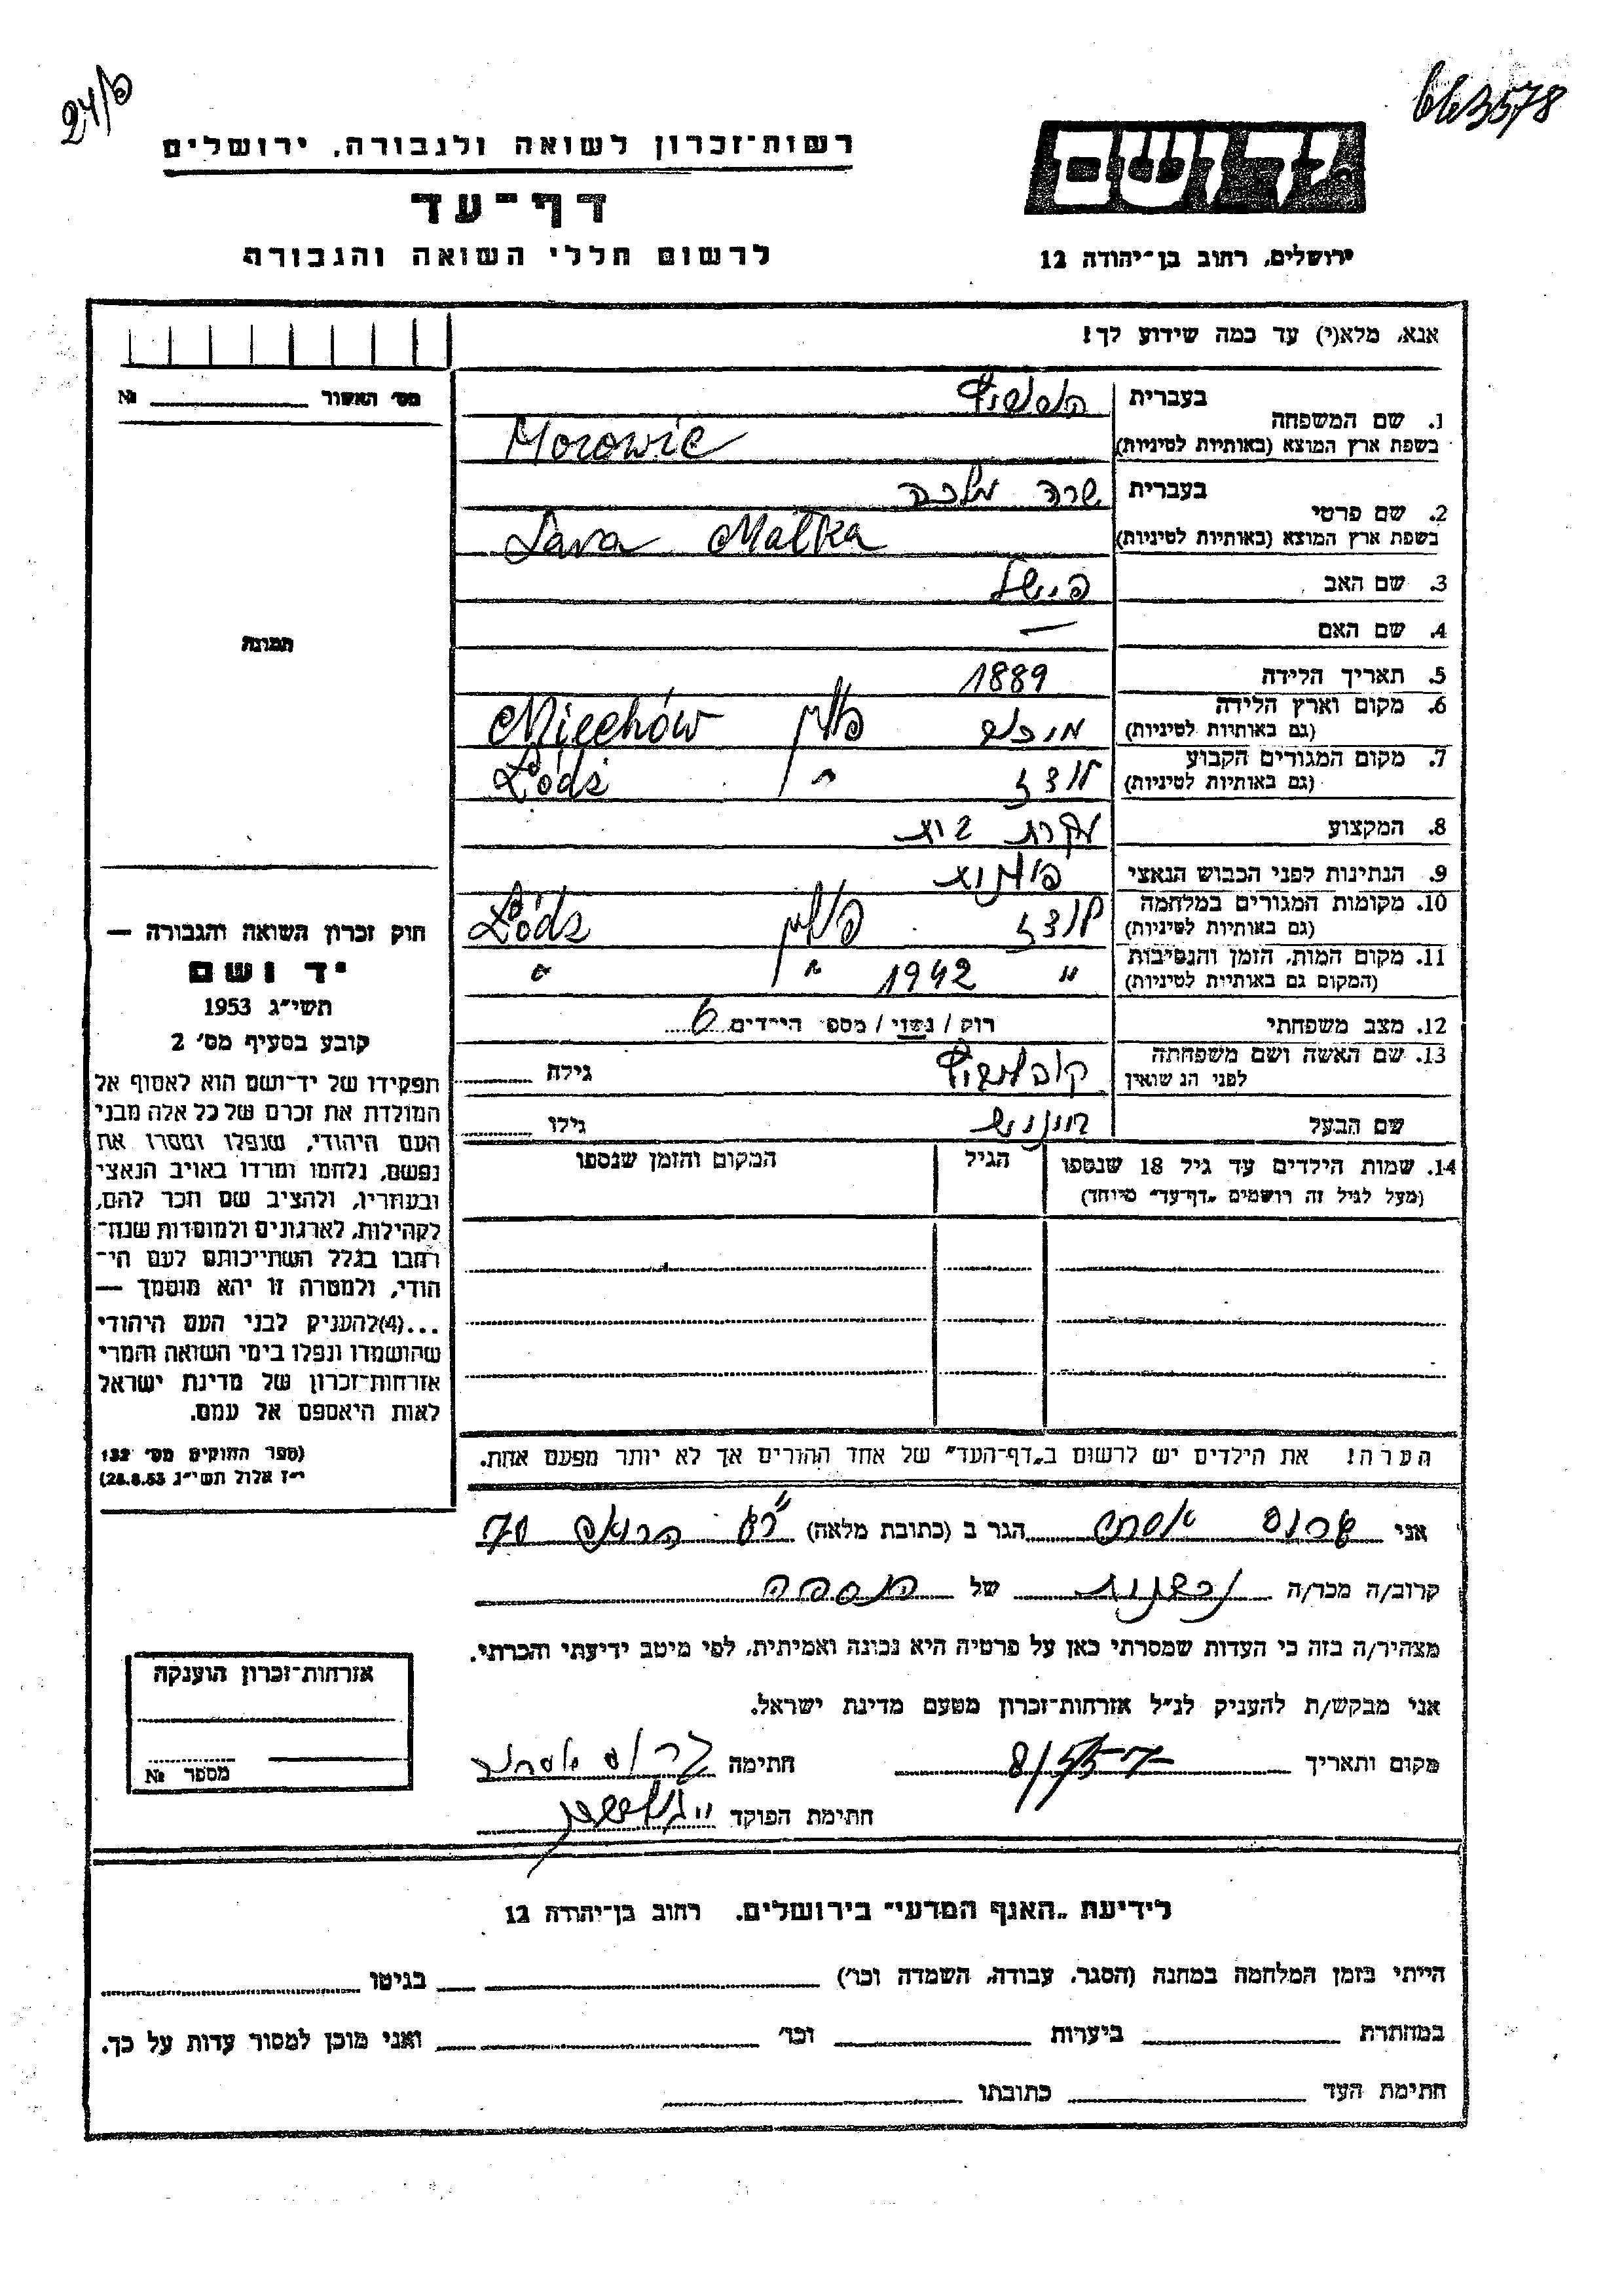 27/6
663578
רשות־זכרון לשואה ולגבורה, ירושלים
יד ושם
דף־עד
לרשום חללי השואה והגבורה
ירושלים, רחוב בן־יהודה 12
אנא, מלא(י) עד כמה שידוע לך!
מס׳ האשור № 
1. שם המשפחה
בעברית
בשפת ארץ המוצא (באותיות לטיניות) Morowic
2. שם פרטי
בעברית שרה מלכה
בשפת ארץ המוצא (באותיות לטיניות) Sara Malka
3. שם האב פישל
4. שם האם —
תמונה
5. תאריך הלידה 1889
6. מקום וארץ הלידה
(גם באותיות לטיניות) פולין Miechów
7. מקום המגורים הקבוע
(גם באותיות לטיניות) לודז " Łódź
8. המקצוע עקרת בית
9. הנתינות לפני הכבוש הנאצי פולנית
10. מקומות המגורים במלחמה
(גם באותיות לטיניות) לודז פולין Łódź
11. מקום המות, הזמן והנסיבות
(המקום גם באותיות לטיניות) " 1942 " "
12. מצב משפחתי רוק / נשוי / מספר הילדים 6
13. שם האשה ושם משפחתה
לפני הנשואין גילה
שם הבעל גילו
14. שמות הילדים עד גיל 18 שנספו
(מעל לגיל זה רושמים „דף־עד״ מיוחד)
הגיל
המקום והזמן שנספו
חוק זכרון השואה והגבורה —
יד ושם
תשי״ג 1953
קובע בסעיף מס׳ 2
תפקידו של יד־ושם הוא לאסוף אל
המולדת את זכרם של כל אלה מבני
העם היהודי, שנפלו ומסרו את
נפשם, נלחמו ומרדו באויב הנאצי
ובעוזריו, ולהציב שם וזכר להם,
לקהילות, לארגונים ולמוסדות שנח־
רבו בגלל השתייכותם לעם הי־
הודי, ולמטרה זו יהא מוסמך —
...(4)להעניק לבני העם היהודי
שהושמדו ונפלו בימי השואה והמרי
אזרחות־זכרון של מדינת ישראל
לאות היאספם אל עמם.
(ספר החוקים מס׳ 132
י״ז אלול תשי״ג 28.8.53)
הערה! את הילדים יש לרשום ב„דף־העד״ של אחד ההורים אך לא יותר מפעם אחת.
אני אסתר הגר ב (כתובת מלאה)
קרוב/ה מכר/ה של הנספה
מצהיר/ה בזה כי העדות שמסרתי כאן על פרטיה היא נכונה ואמיתית, לפי מיטב ידיעתי והכרתי.
אני מבקש/ת להעניק לנ״ל אזרחות־זכרון מטעם מדינת ישראל.
מקום ותאריך חתימה
חתימת הפוקד
אזרחות־זכרון הוענקה
מספר №
לידיעת „האגף המדעי״ בירושלים, רחוב בן־יהודה 12
הייתי בזמן המלחמה במחנה (הסגר, עבודה, השמדה וכו׳) בגיטו
במחתרת ביערות וכו׳ ואני מוכן למסור עדות על כך.
חתימת העד כתובתו